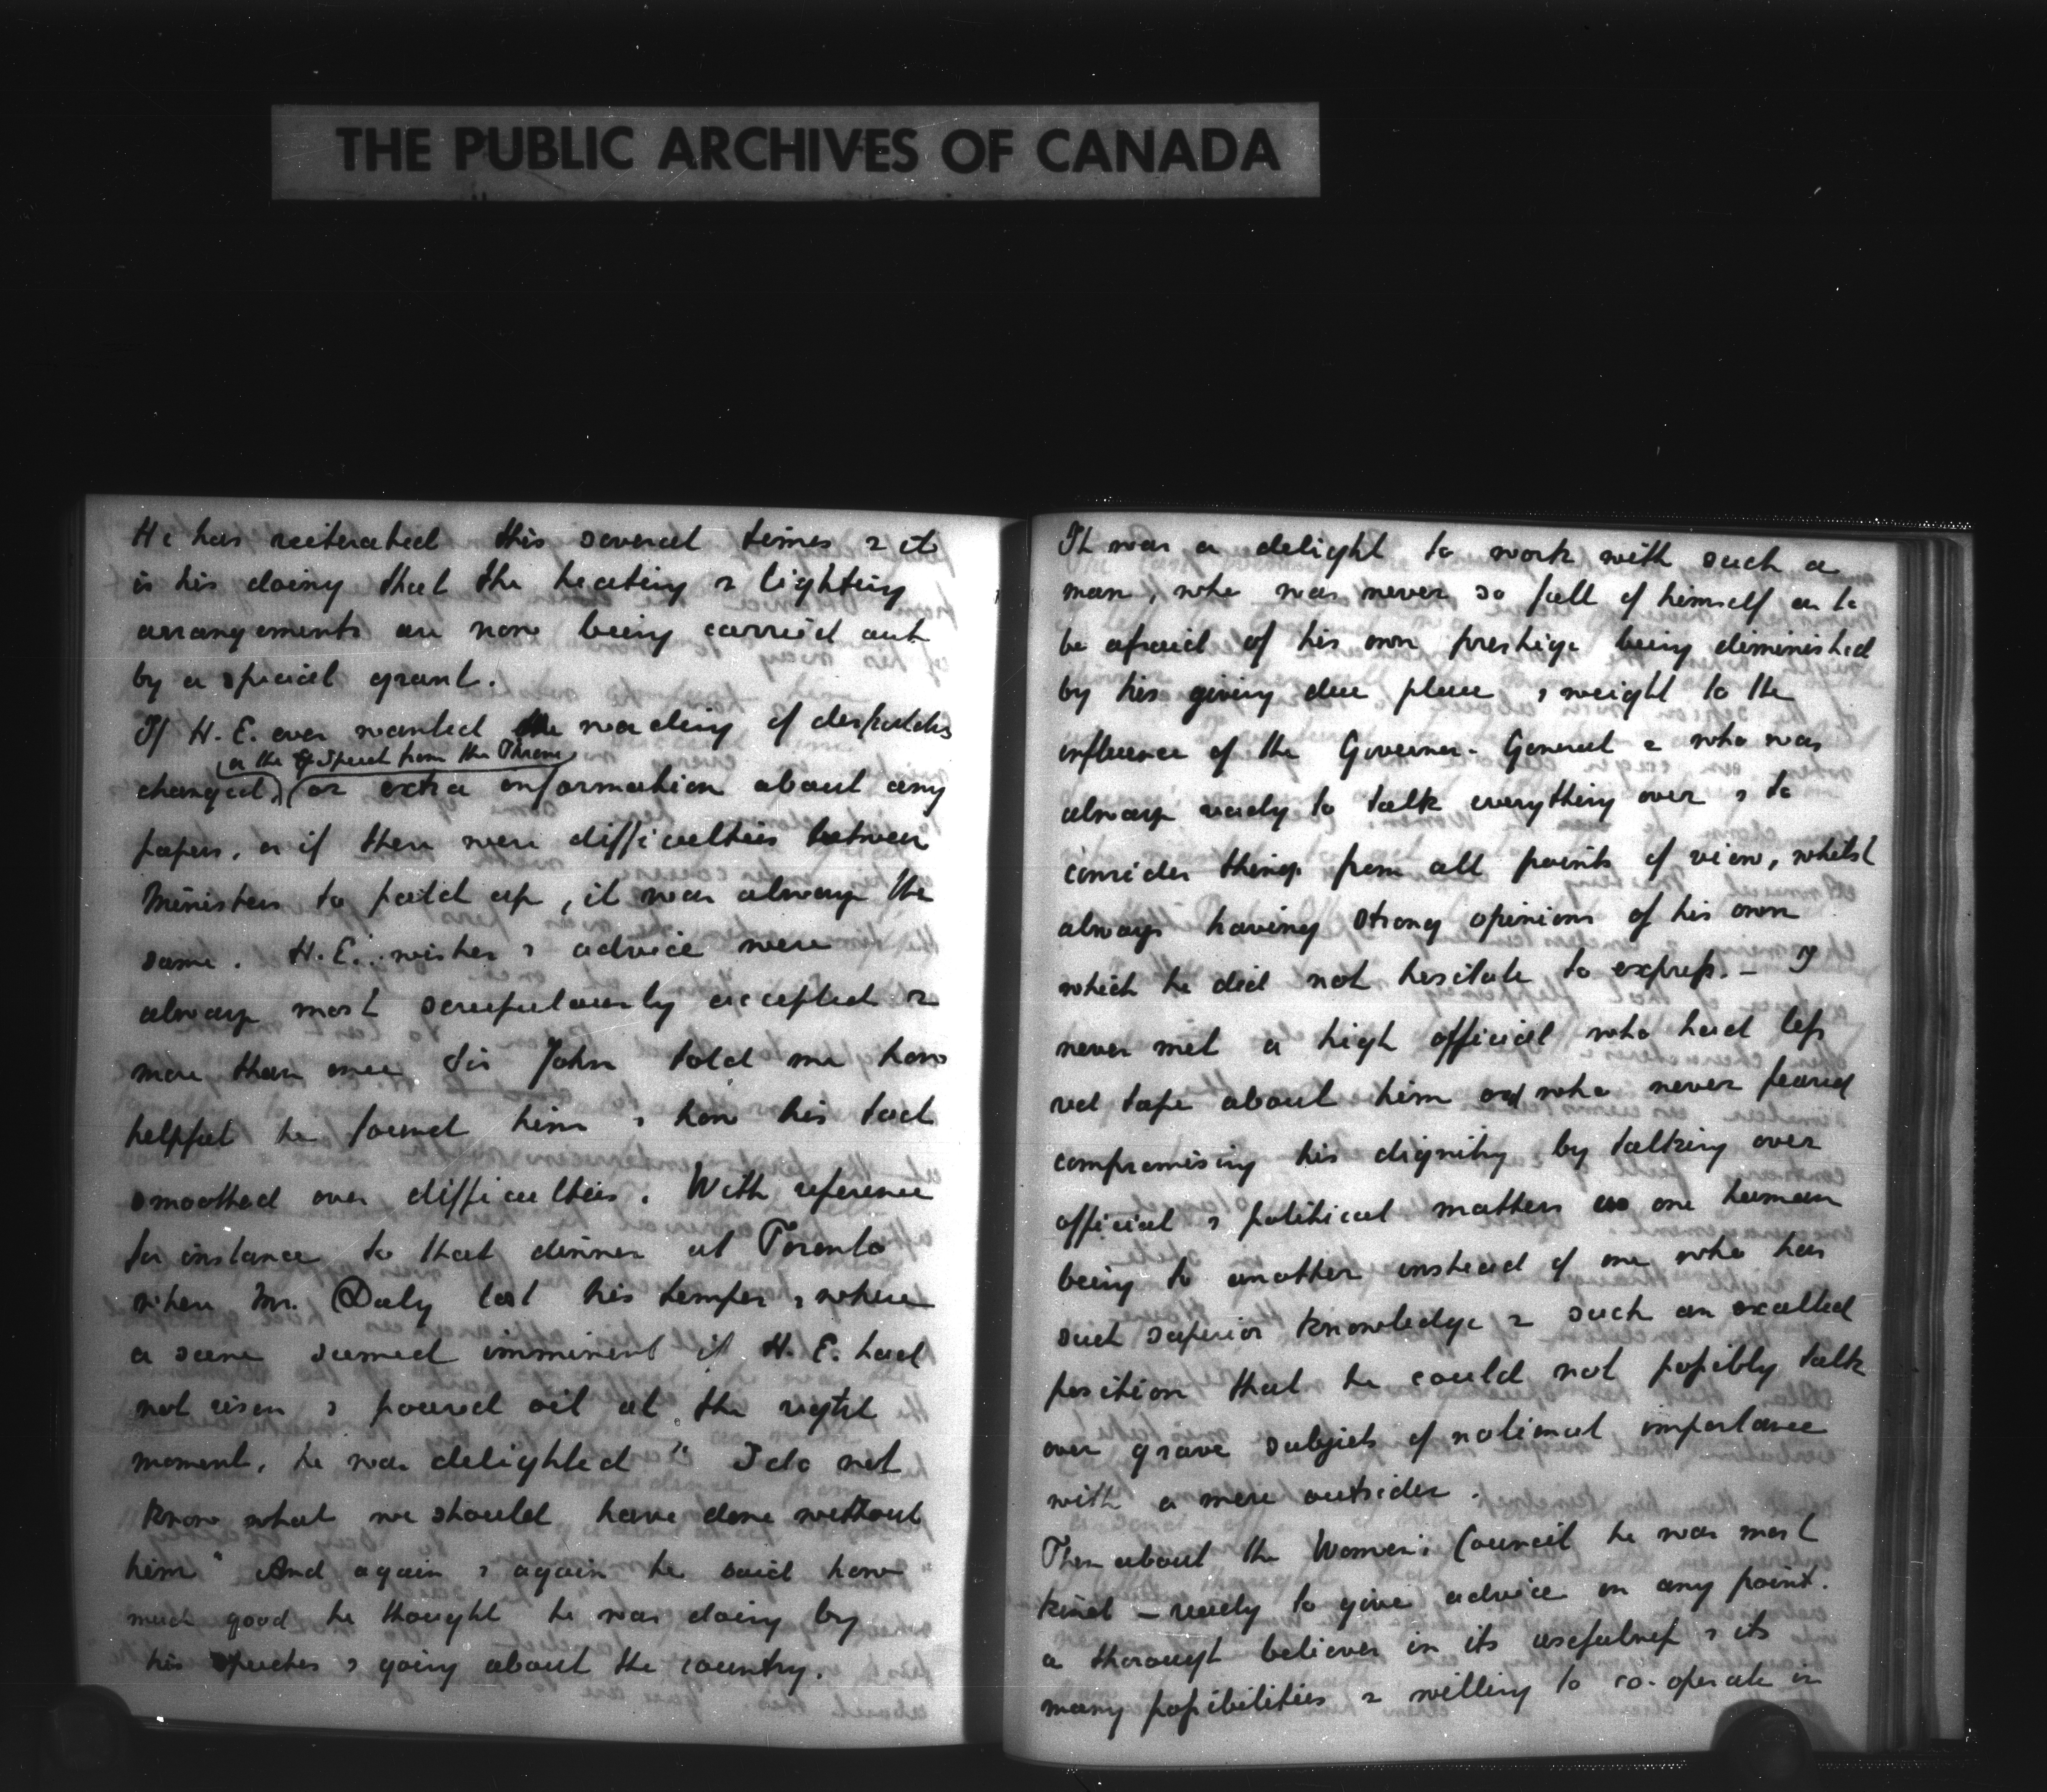 THE PUBLIC ARCHIVES OF CANADA
He has reiterated this several times & it
is his doing that the heating & lighting
arrangements are now being carried out
by a special grant.
If H. E. ever wanted the wording of despatches
or the Speech from the Throne
changed, or extra information about any
papers, or if there were difficulties between
Ministers to patch up, it was always the
same. H.E.'s wishes & advice were
always most scrupulously accepted &
more than once Sir John told me how
helpful he found him & how his tact
smoothed over difficulties. With reference
for instance to that dinner at Toronto
when Mr. Daly lost his temper & where
a scene seemed imminent if H. E. had
not risen & poured oil at the right
moment, he was delighted " I do not
know what we should have done without
him" And again & again he said how
much good he thought he was doing by
his speeches & going about the country.
It was a delight to work with such a
man, who was never so full of himself as to
be afraid of his own prestige being diminished
by his giving due place & weight to the
influence of the Governor-General & who was
always ready to talk everything over & to
consider things from all points of view, whilst
always having strong opinions of his own
which he did not hesitate to express. - I
never met a high official who had less
red tape about him and who never feared
compromising his dignity by talking over
official & political matters as one human
being to another instead of one who has
such superior knowledge & such an exalted
position that he could not possibly talk
over grave subjects of national importance
with a mere outsider.
Then about the Women's Council he was most
kind - ready to give advice on any point.
a thorough believer in its usefulness & its
many possibilities & willing to co-operate in